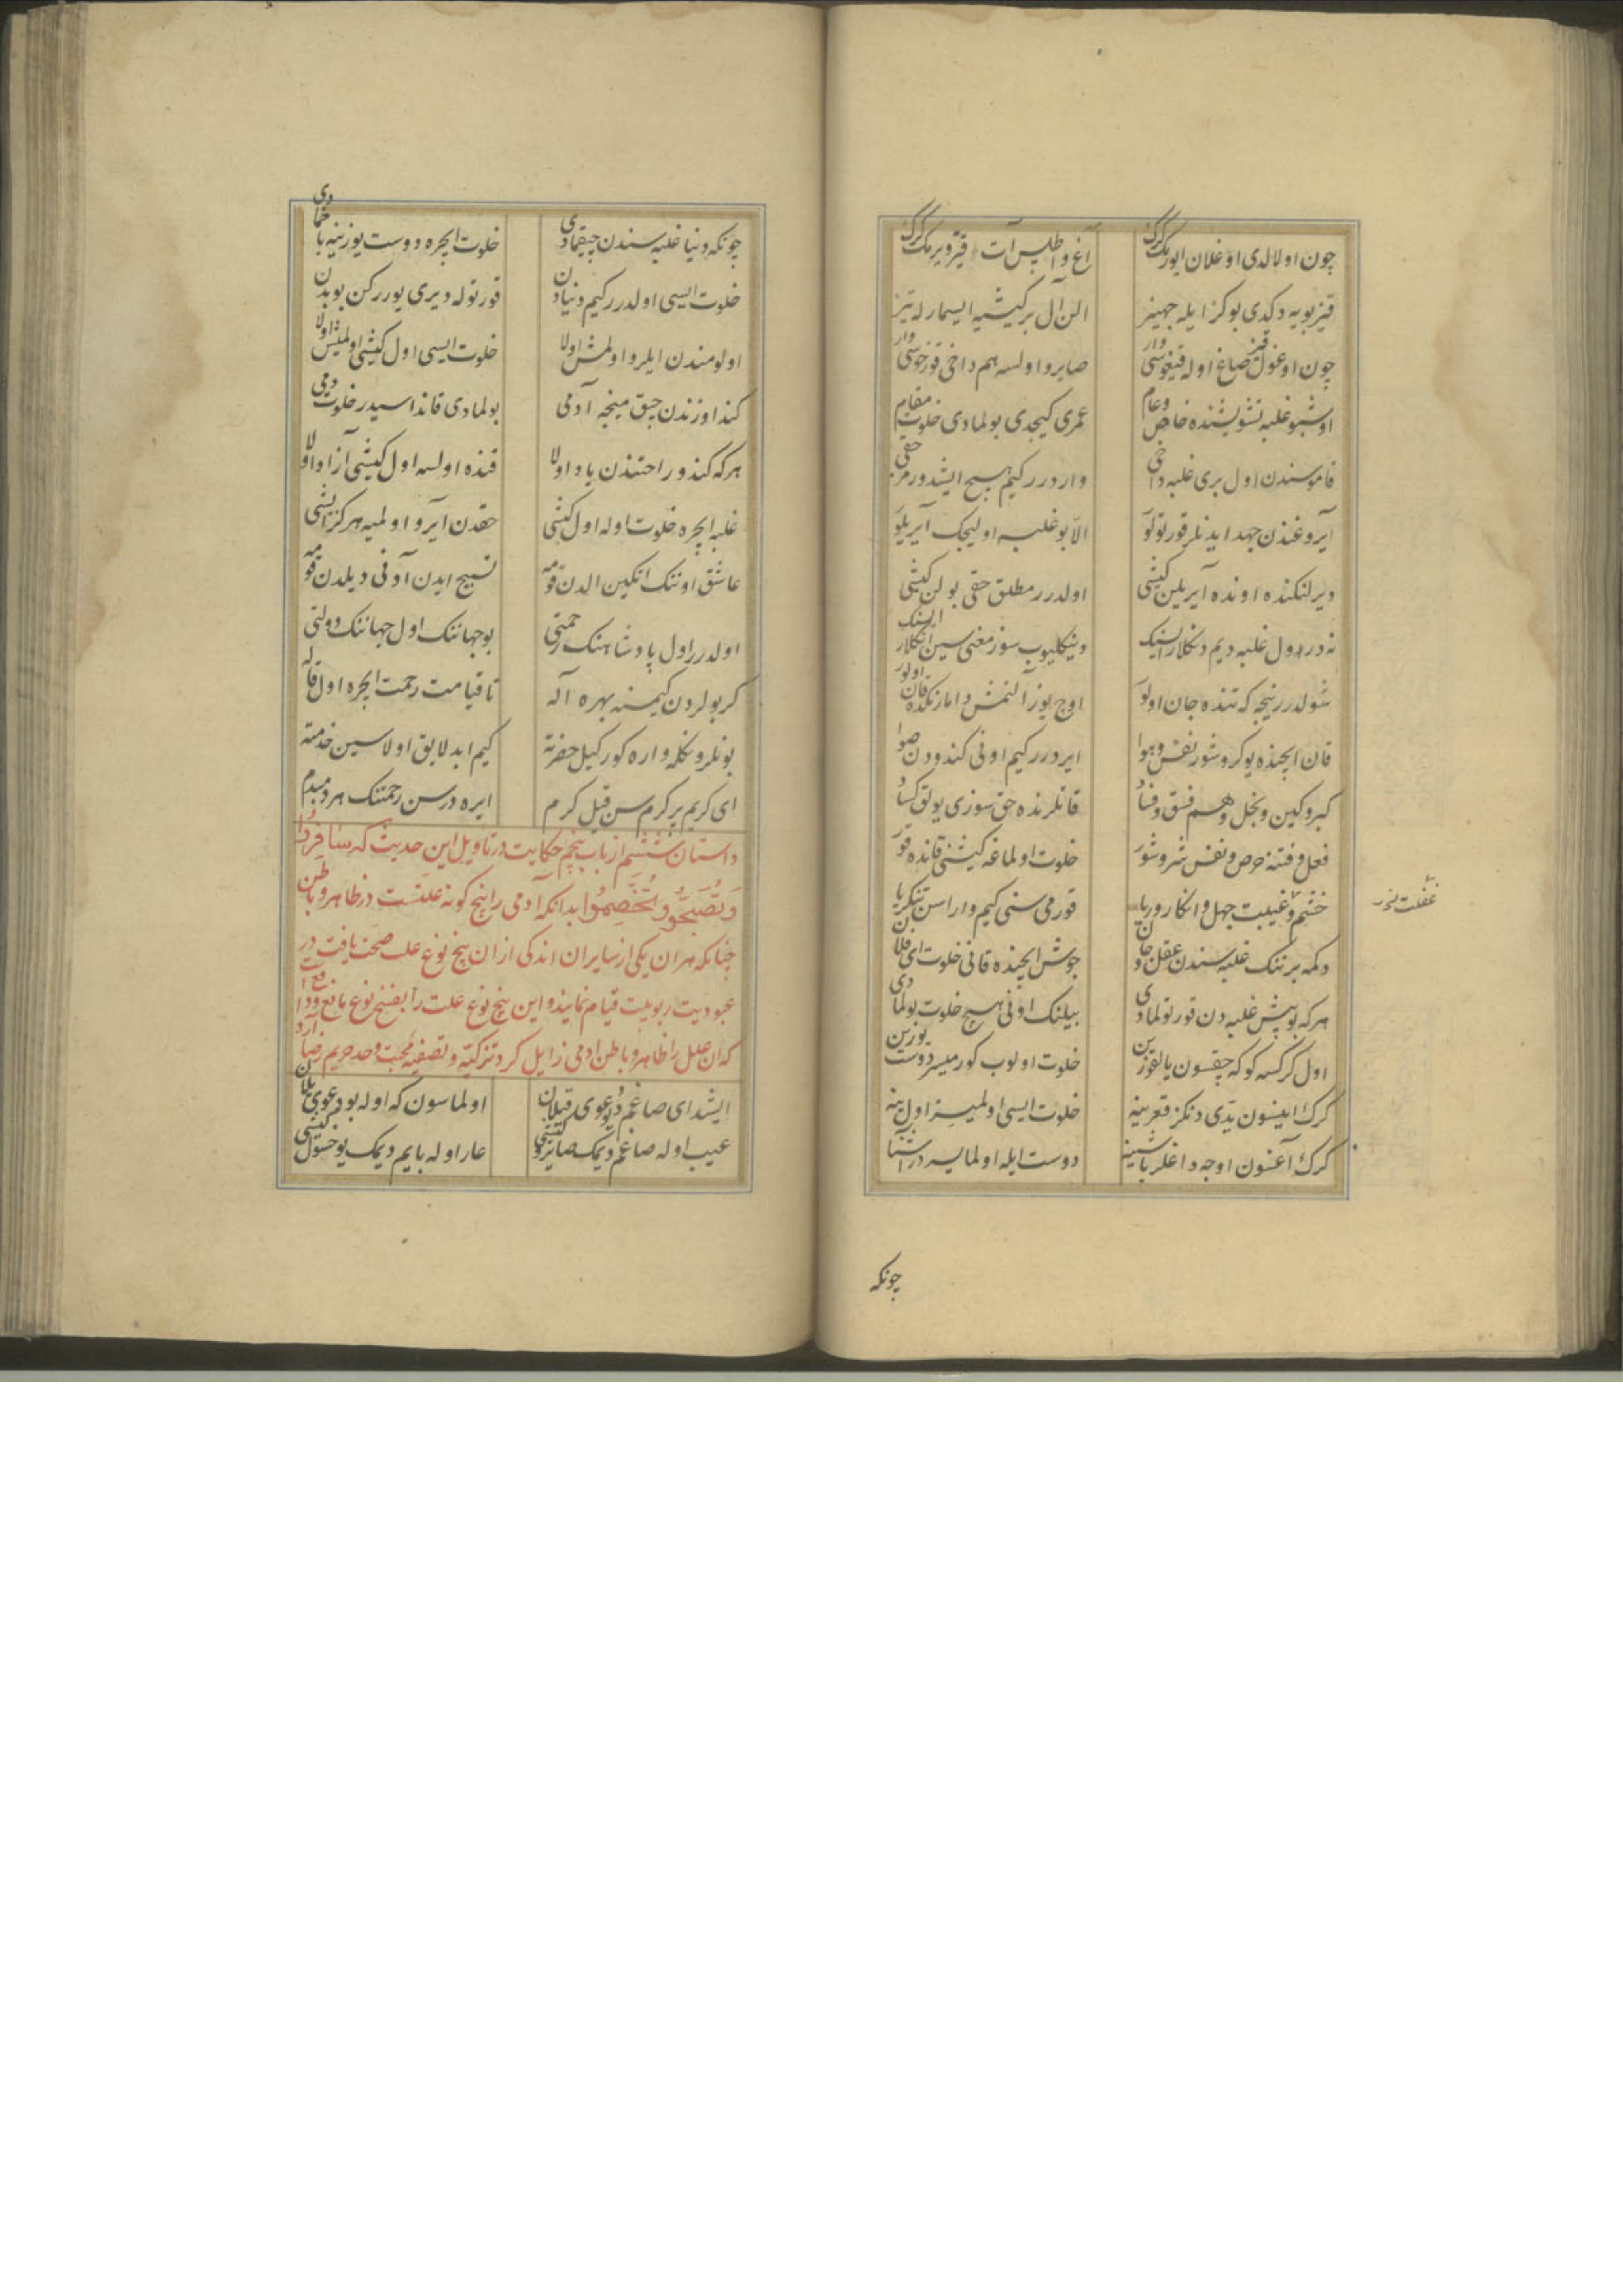 چون اولالدی اوغلان ایورمک کرک آغ و اطلس آت قیزویرمک کرک
قیز بویه دکدی بو کز ایله جهیز الن آل بر کیشیه ایسمارله تیز
چون اوغول قیز صاغ اوله قیغوسی وار صایرو اولسه هم داخی قورخوسی وار
اوشبو غلبه تشویشنده خاص و عام عمری کیجدی بولمادی خلوت مقام
قاموسندن اول بری غلبه داخی واردرر کیم هیچ ایشدورمز حقی
آیروغندن جهد ایدنلر قورتولو الا بو غلبه اولیجک آیریلو
دیرلنکنده اونده آیریلن کیشی اولدرر مطلق حقی بولن کیشی
نه درر اول غلبه دیم دنکلا رایسنک دینکلیوب سوز معنی سین آنکلا رایسنک
شولدرر نیجه که تنده جان اولو اوچ یوز آلتمش دامارنکده قان اولور
قان ایچنده یوکروشور نفس و هوا ایردرر کیم اونی کندودن صوا
کبر و کین و بخل و هم فسق و فساد قانلرنده حق سوزی بولق کساد
فعل و فتنه حرص و نفس شر و شور خلوت اولماغه کیشی قانده قور
خشم و غیبت جهل و انکار و ریا قورمی سنی کیم واراسن تنکریا
غفلت نخور
دکمه برننک غلبه سندن عقل و جان جوش ایچنده قانی خلوت ای فلان
هرکه بو بیش غلبه دن قورتولمادی بیلنک اونی هیچ خلوت بولمادی
اول کرکسه کوکه چقسون یالقوزین خلوت اولوب کورمیسر دوست یوزین
کرک اینسون یتدی دنکز قعرینه خلوت ایسی اولمیسز اول ینه
کرک آغسون اوجه داغلر باشینه دوست ایله اولمایسر در آشنا
چونکه
چونکه دنیا غلبه سندن چیقمادی خلوت ایچره دوست یوزینه باخمادی
خلوت ایسی اولدرر کیم دنیادن قورتوله دیری یوررکن بو بدن
اولومندن ایلرو اولمش اولا خلوت ایسی اول کیشی اولمیس اولا
کندوزندن چیق مینجه آدمی بولمادی قانداسیدر خلوت دمی
هرکه کندو راحتندن یاد اولا قنده اولسه اول کیشی آزاد اولا
غلبه ایچره خلوت اوله اول کیشی حقدن آیرو اولمیه هرکز ایشی
عاشق اوننک اتکین الدن قومه تسبیح ایدن آونی دیلدن قومه
اولدرر اول پادشاهنک رحمتی بو جهاننک اول جهاننک دولتی
کر بولردن کیمسنه بهره آله تا قیامت رحمت ایچره اول قاله
بونلرونکله واره کور کیل حضرته کیم ابد لایق اولاسین خدمته
ای کریم پر کرم سن قیل کرم ایره درسن رحمتنک هر دمبدم
داستان ششم از باب پنجم حکایت در تاویل این حدیث که سافروا
وتصحوا وتخصموا بدانکه آدمی را پنج کونه علتست در ظاهر و باطن
چنانکه هر ان یکی از سایران اندکی از ان پنج نوع علت صحت یافت در
عبودیت ربوبیت قیام نمایند و این پنج نوع علت را بفنج نوع مانع و دافع است
که ان علل را ظاهر و باطن ادمی زایل کرد تزکیه و تصفیه محبت وحد حریم رضا آرد
ایشد ای صاغم دیو دعوی قیلان اولماسون که اوله بو دعوی یلان
عیب اوله صاغم دیمک صایرو کیشی عار اوله بایم دیمک یوخسول کیشی